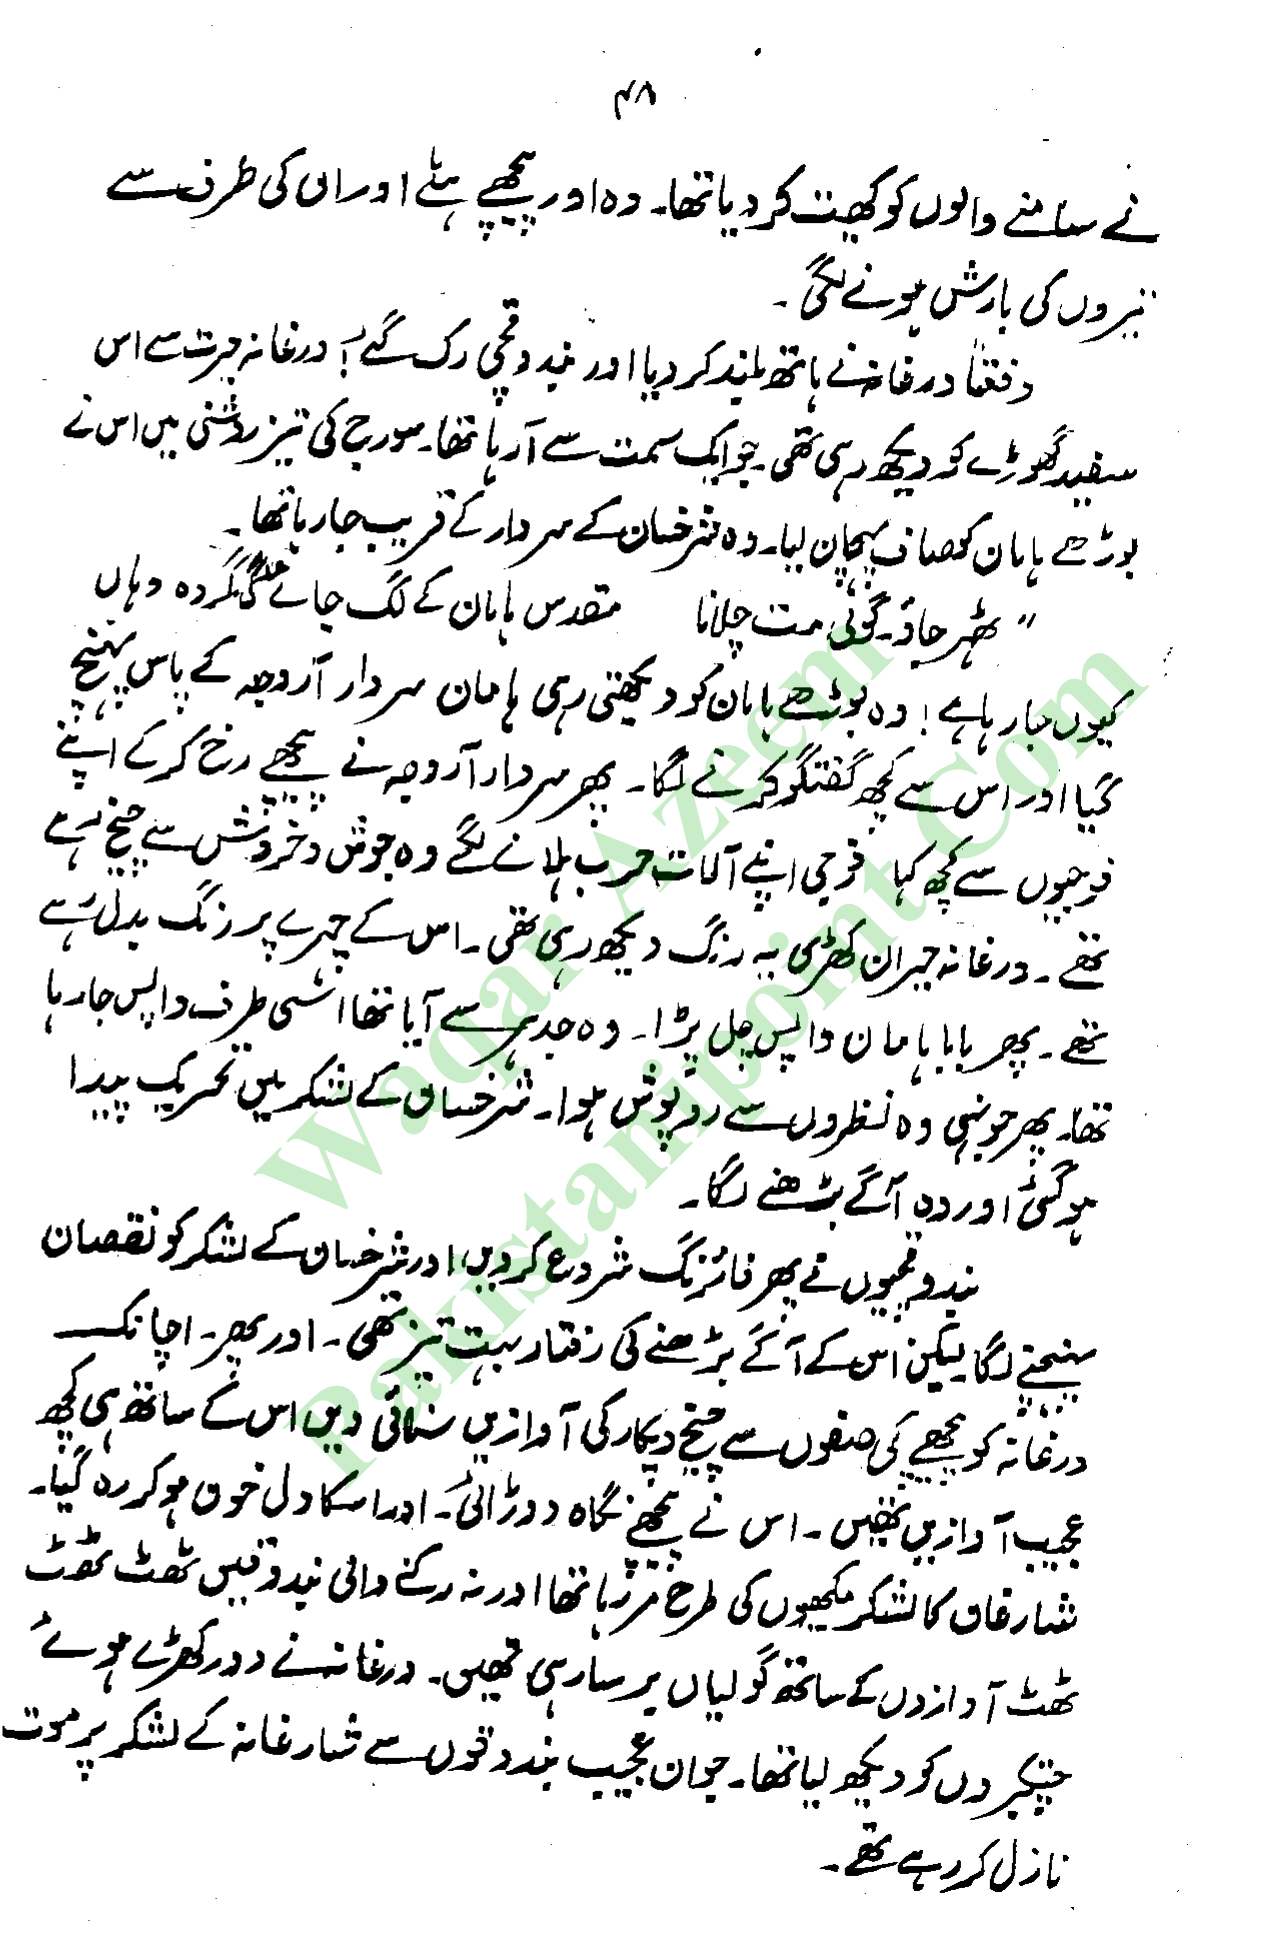 ۴۸
نے سامنے والوں کو کھیت کر دیا تھا۔ وہ اور پیچھے ہٹے اور ان کی طرف سے
تیروں کی بارش ہونے لگی۔
دفعتاً درغانہ نے ہاتھ بلند کر دیا اور بندوقچی رک گئے! درغانہ حیرت سے اس
سفید گھوڑے کو دیکھ رہی تھی جو ایک سمت سے آرہا تھا۔ سورج کی تیز روشنی میں اس نے
بوڑھے ہامان کو صاف پہچان لیا۔ وہ شرخسان کے سردار کے قریب جا رہا تھا۔
" ٹھہر جاؤ۔ گولی مت چلانا مقدس ہامان کے لگ جائے گی مگر وہ وہاں
کیوں جا رہا ہے! وہ بوڑھے ہامان کو دیکھتی رہی ہامان سردار آروجہ کے پاس پہنچ
گیا اور اس سے کچھ گفتگو کرنے لگا۔ پھر سردار آروجہ نے پیچھے رخ کر کے اپنے
فوجیوں سے کچھ کہا فوجی اپنے آلات حرب ہلانے لگے وہ جوش و خروش سے چیخ رہے
تھے۔ درغانہ حیران کھڑی یہ رنگ دیکھ رہی تھی۔ اس کے چہرے پر رنگ بدل رہے
تھے۔ پھر بابا ہامان واپس چل پڑا۔ وہ جدھر سے آیا تھا اسی طرف واپس جا رہا
تھا۔ پھر جونہی وہ نظروں سے روپوش ہوا۔ شرخسان کے لشکر میں تحریک پیدا
ہوگئی اور وہ آگے بڑھنے لگا۔
بندوقچیوں نے پھر فائرنگ شروع کر دیں اور شرخسان کے لشکر کو نقصان
پہنچنے لگا لیکن اس کے آگے بڑھنے کی رفتار بہت تیز تھی۔ اور پھر۔ اچانک
درغانہ کو پیچھے کی صفوں سے چیخ و پکار کی آوازیں سنائی دیں اس کے ساتھ ہی کچھ
عجیب آوازیں تھیں۔ اس نے پیچھے نگاہ دوڑائی۔ اور اسکا دل خون ہو کر رہ گیا۔
شارغان کا لشکر مکھیوں کی طرح مر رہا تھا اور نہ رکنے والی بندوقیں ٹھٹ ٹھٹ
ٹھٹ آوازوں کے ساتھ گولیاں برسا رہی تھیں۔ درغانہ نے دور کھڑے ہوئے
چتکبروں کو دیکھ لیا تھا۔ جو ان عجیب بندوقوں سے شارغانہ کے لشکر پر موت
نازل کر رہے تھے۔
Waqar Azeem
Pakistanipoint.Com